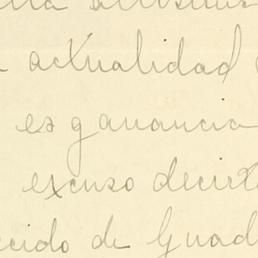 actualidad
es ganancia
excuso decirte
de Guad